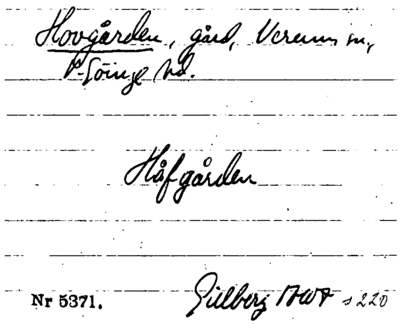 Hovgården, gård, Verums sn,
V. Göinge hd.
Håfgården
Nr 5371. Gillberg s 220